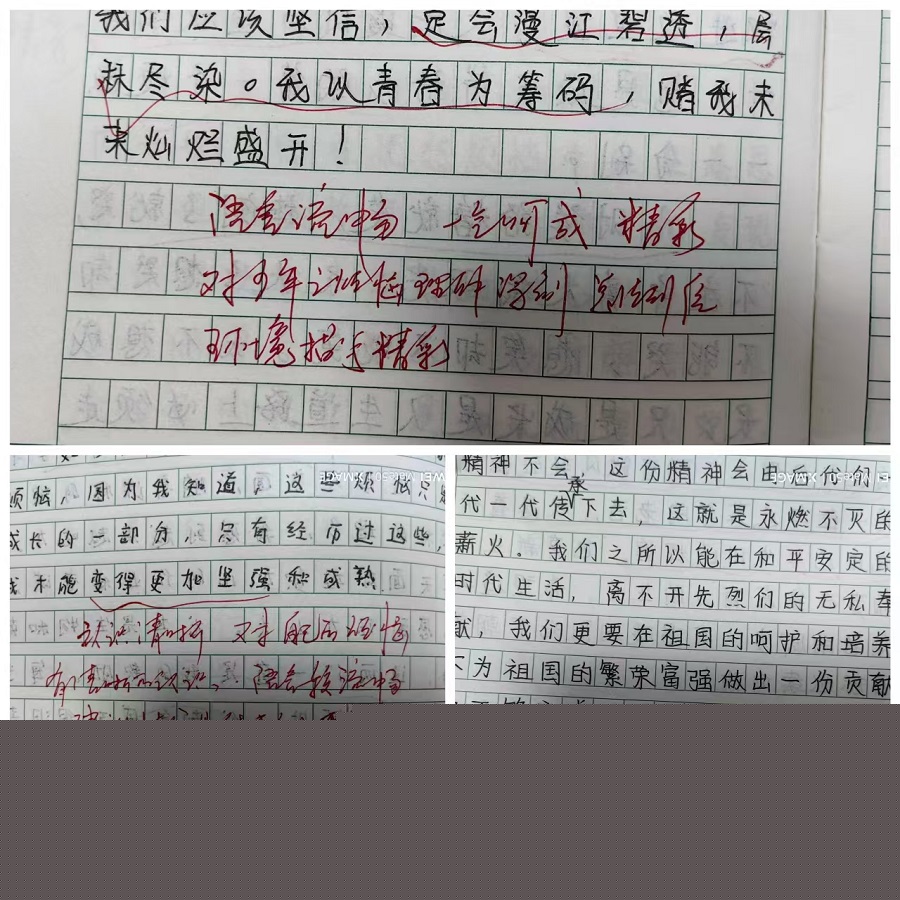 我们应该坚信，定会漫江碧透，层
林尽染。我以青春为筹码，赌我未
来灿烂盛开！
语言流畅 一气呵成 精彩
对少年之烦恼理解深刻
环境描写精彩
烦恼，因为我知道，这些烦恼只是
成长的一部分，只有经历过这些，
我才能变得更加坚强和成熟
认识清晰 对烦恼
有清晰的认识，语言较流畅
精神不会 这份精神会由后代们
承
代一代传下去，这就是永燃不灭的
薪火。我们之所以能在和平安定的
时代生活，离不开先烈们的无私奉
献，我们更要在祖国的呵护和培养
下为祖国的繁荣富强做出一份贡献